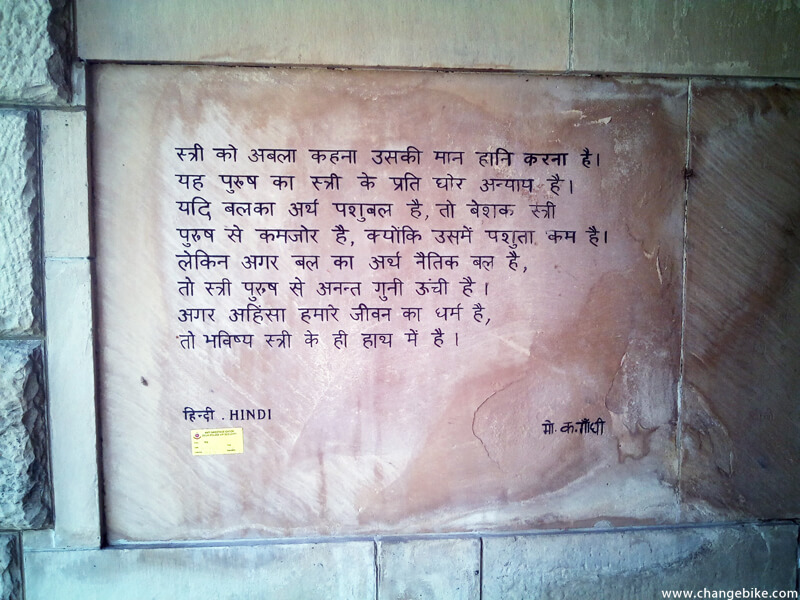 स्त्री को अबला कहना उसकी मान हानि करना है।
यह पुरुष का स्त्री के प्रति घोर अन्याय है।
यदि बलका अर्थ पशुबल है, तो बेशक स्त्री
पुरुष से कमजोर है, क्योंकि उसमें पशुता कम है।
लेकिन अगर बल का अर्थ नैतिक बल है,
तो स्त्री पुरुष से अनन्त गुनी ऊंची है।
अगर अहिंसा हमारे जीवन का धर्म है,
तो भविष्य स्त्री के ही हाथ में है।
हिन्दी . HINDI
मो. क. गाँधी
www.changebike.com